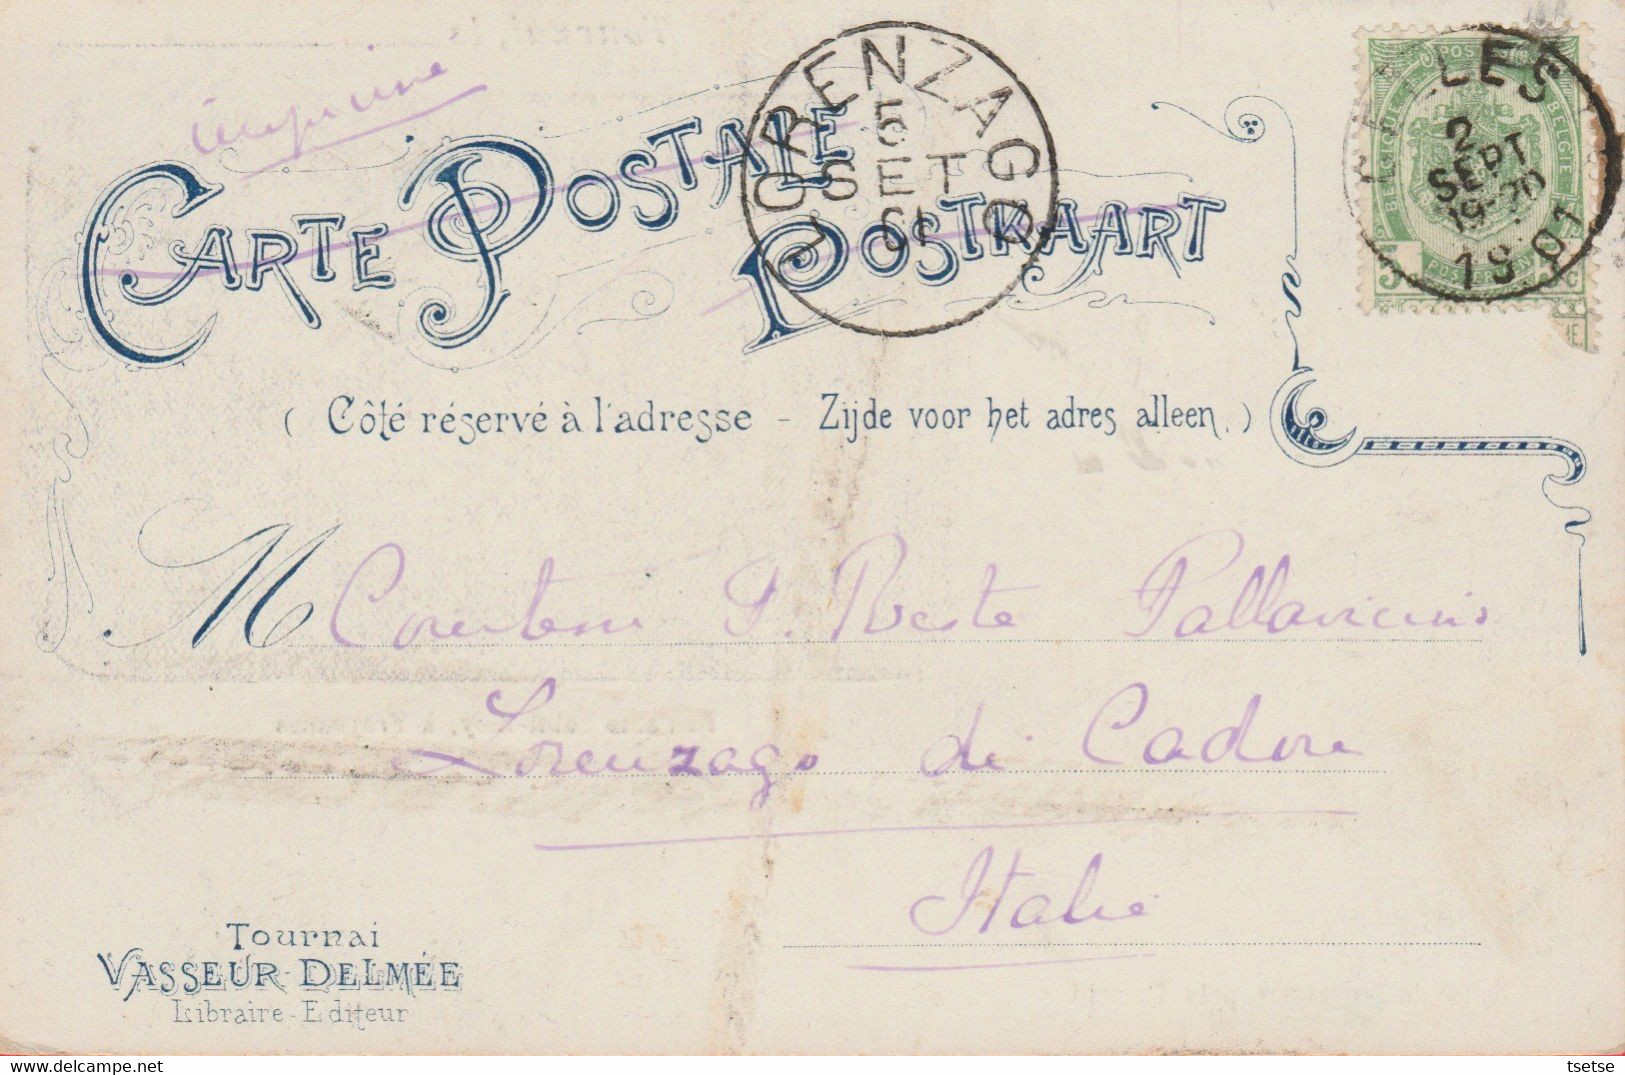 imprimé
CARTE POSTALE
POSTKAART
LORENZAGO
5
SET
01
LLES
2
SEPT
19-20
1901
BELGIQUE
BELGIE
( Côté réservé à l'adresse - Zijde voor het adres alleen.)
M
P. Beste Pallavicini
Lorenzago di Cadore
Italie
Tournai
VASSEUR-DELMÉE
Libraire-Editeur
tsetse